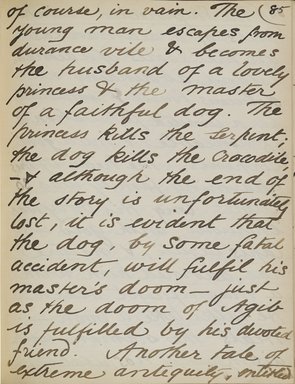 of course, in vain. The (85
young man escapes from
durance vile & becomes
the husband of a lovely
princess & the master
of a faithful dog. The
princess kills the serpent;
the dog kills the crocodile,
— & although the end of
the story is unfortunately
lost, it is evident that
the dog, by some fatal
accident, will fulfil his
master's doom — just
as the doom of Agib
is fulfilled by his devoted
friend. Another tale of
extreme antiquity, entitled